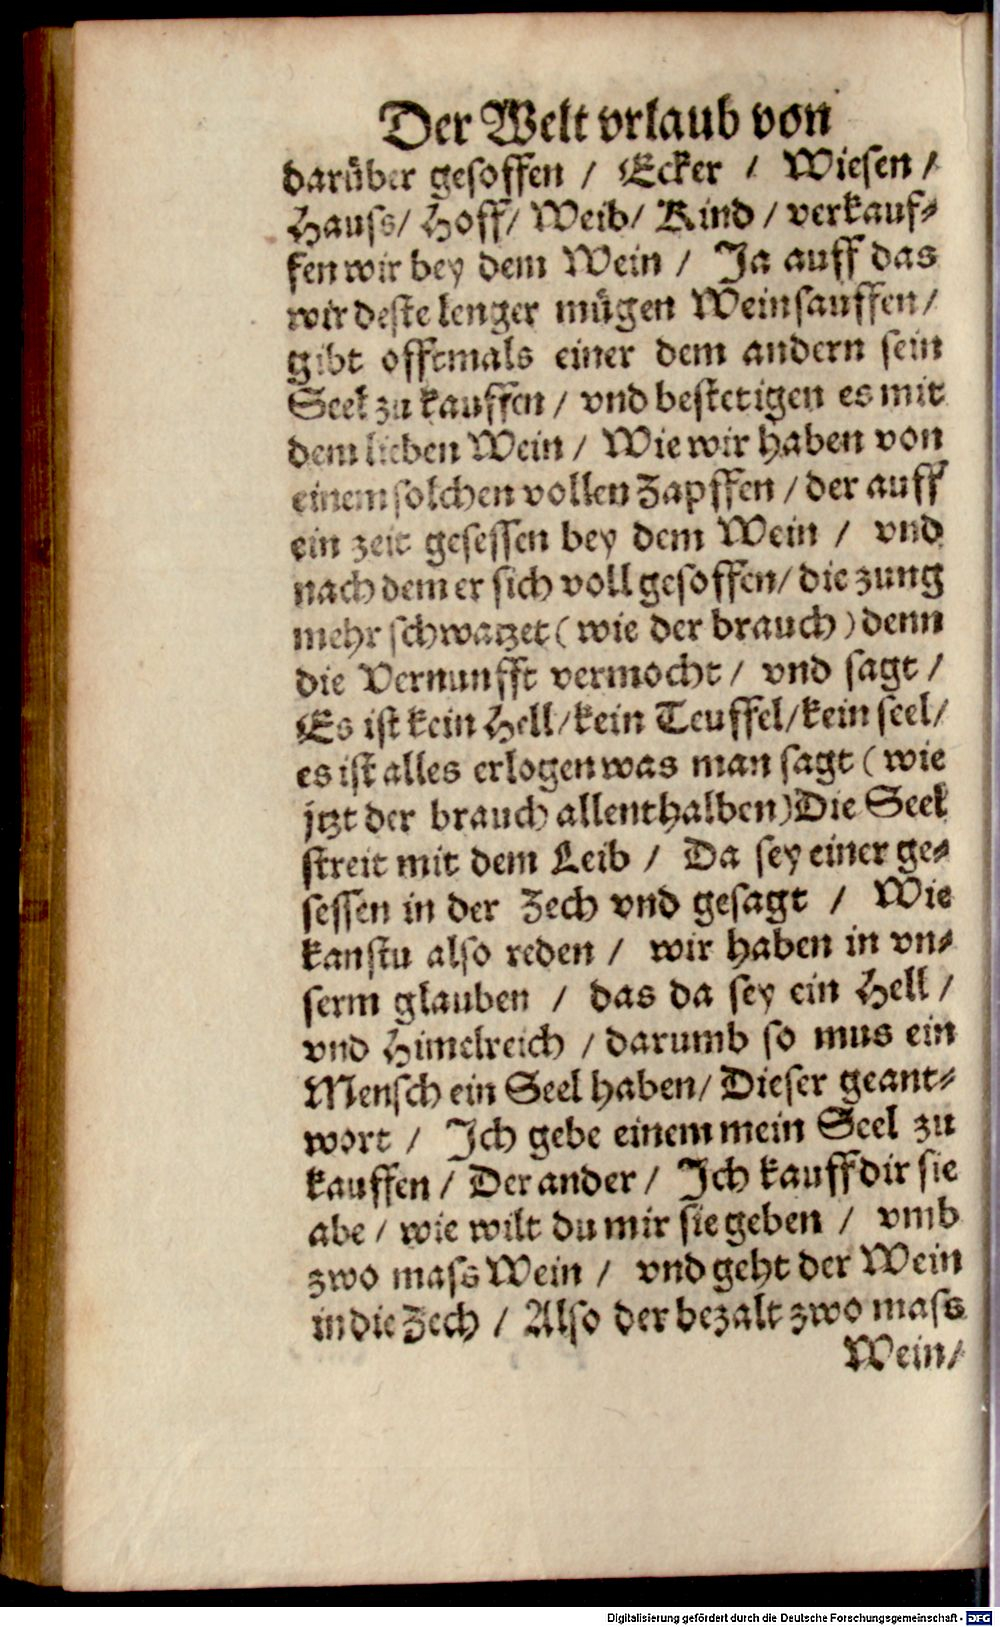 Der Welt vrlaub von
darüber gesoffen / Ecker / Wiesen /
Hauss / Hoff / Weib / Kind / verkauf-
fen wir bey dem Wein / Ja auff das
wir deste lenger mügen Wein sauffen /
gibt offtmals einer dem andern sein
Seel zu kauffen / vnd bestetigen es mit
dem lieben Wein / Wie wir haben von
einem solchen vollen Zapffen / der auff
ein zeit gesessen bey dem Wein / vnd
nach dem er sich voll gesoffen / die zung
mehr schwatzet ( wie der brauch ) denn
die Vernunfft vermocht / vnd sagt /
Es ist kein Hell / kein Teuffel / kein seel /
es ist alles erlogen was man sagt ( wie
jtzt der brauch allenthalben ) Die Seel
streit mit dem Leib / Da sey einer ge-
sessen in der Zech vnd gesagt / Wie
kanstu also reden / wir haben in vn-
serm glauben / das da sey ein Hell /
vnd Himelreich / darumb so mus ein
Mensch ein Seel haben / Dieser geant-
wort / Ich gebe einem mein Seel zu
kauffen / Der ander / Ich kauff dir sie
abe / wie wilt du mir sie geben / vmb
zwo mass Wein / vnd geht der Wein
in die Zech / Also der bezalt zwo mass
Wein /
Digitalisierung gefördert durch die Deutsche Forschungsgemeinschaft - DFG